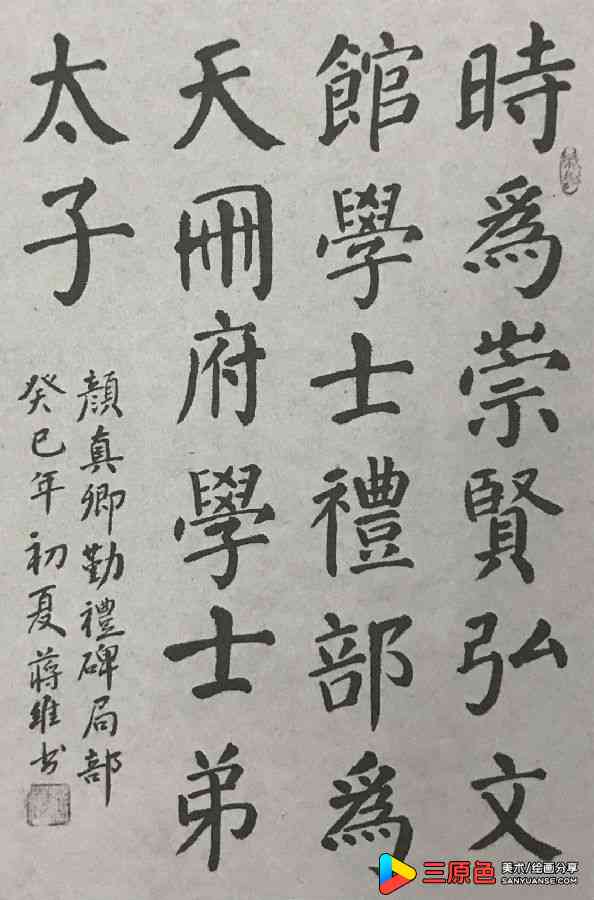 時為崇賢弘文
館學士禮部為
天冊府學士弟
太子
顏真卿勤禮碑局部
癸巳年初夏蔣維书
三原色 美术/绘画分享
SANYUANSE.COM